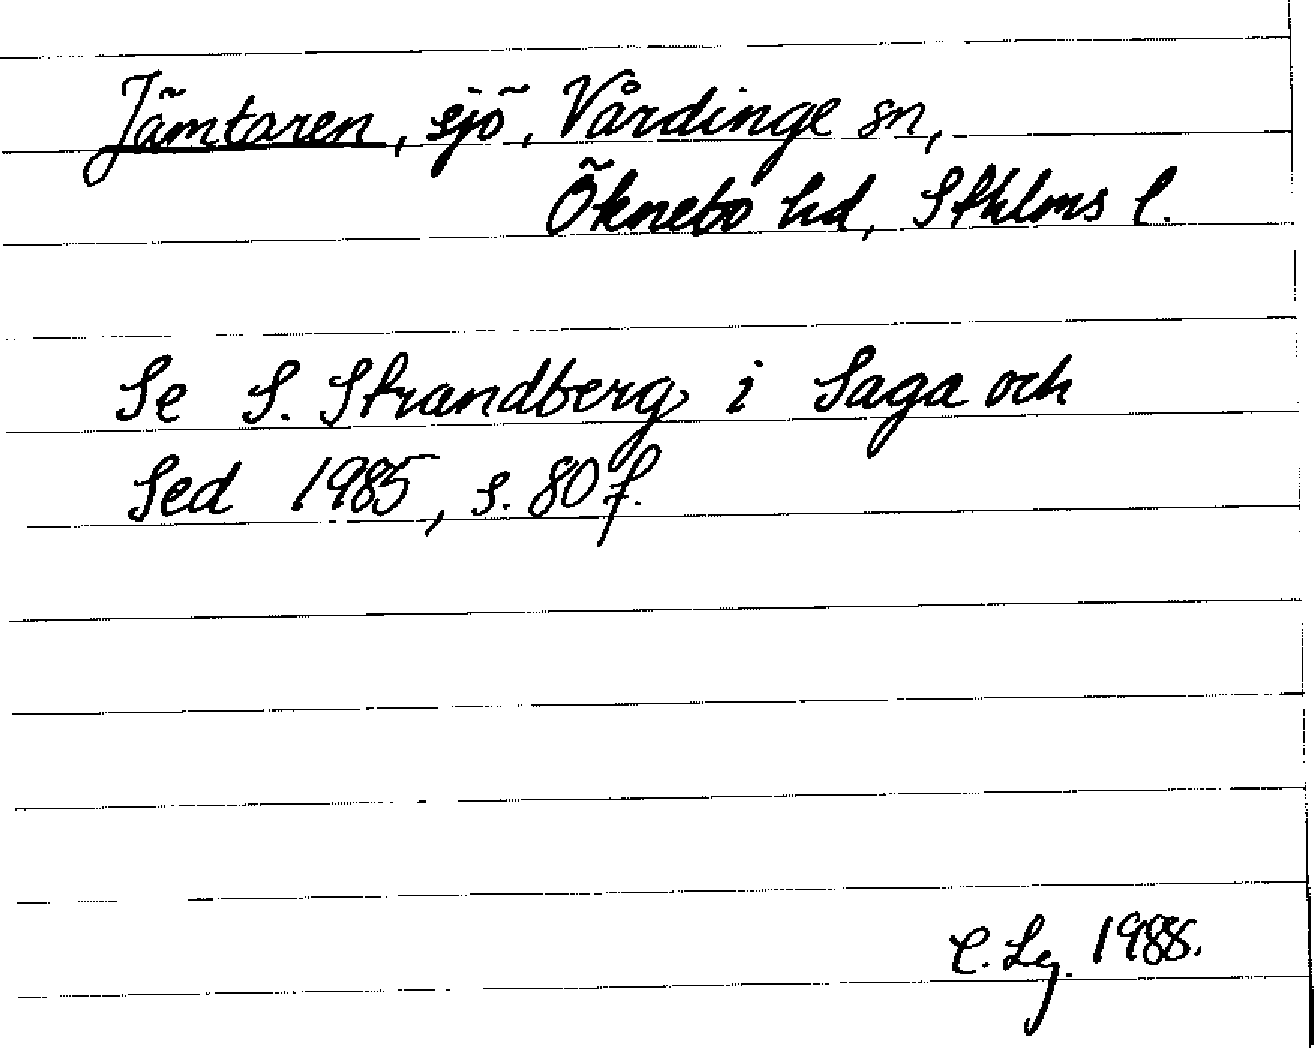 Jämtaren, sjö, Vårdinge sn,
Öknebo hd, Sthlms l.
Se S. Strandberg i Saga och
Sed 1985, s. 80 f.
C. Lg. 1988.